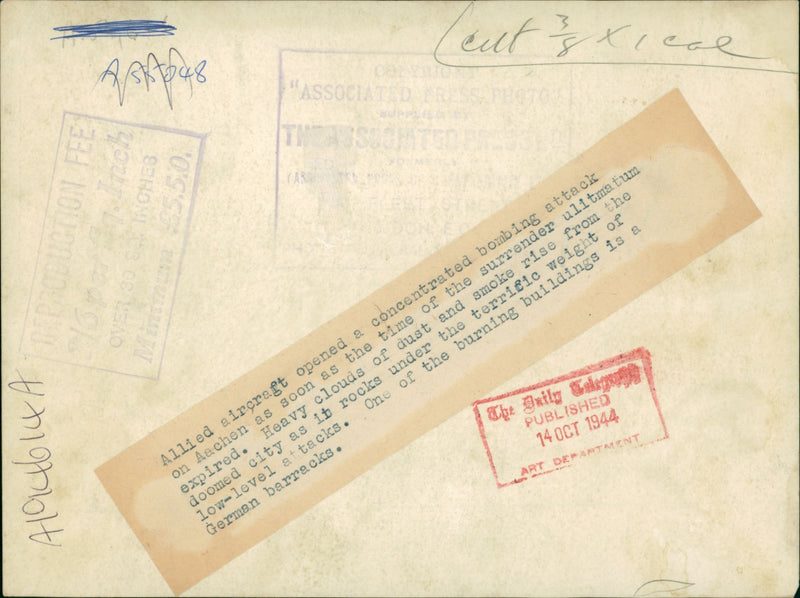 cut 3/8 x 1 col
A55048
COPYRIGHT
"ASSOCIATED PRESS PHOTO"
SUPPLIED BY
THE ASSOCIATED PRESS
FORMERLY
REPRODUCTION FEE:
OVER 30 SQ INCHES
Minimum £3.5.0.
Allied aircraft opened a concentrated bombing attack
on Aachen as soon as the time of the surrender ulitmatum
expired. Heavy clouds of dust and smoke rise from the
doomed city as it rocks under the terrific weight of
low-level attacks. One of the burning buildings is a
German barracks.
The Daily Telegraph
PUBLISHED
14 OCT 1944
ART DEPARTMENT